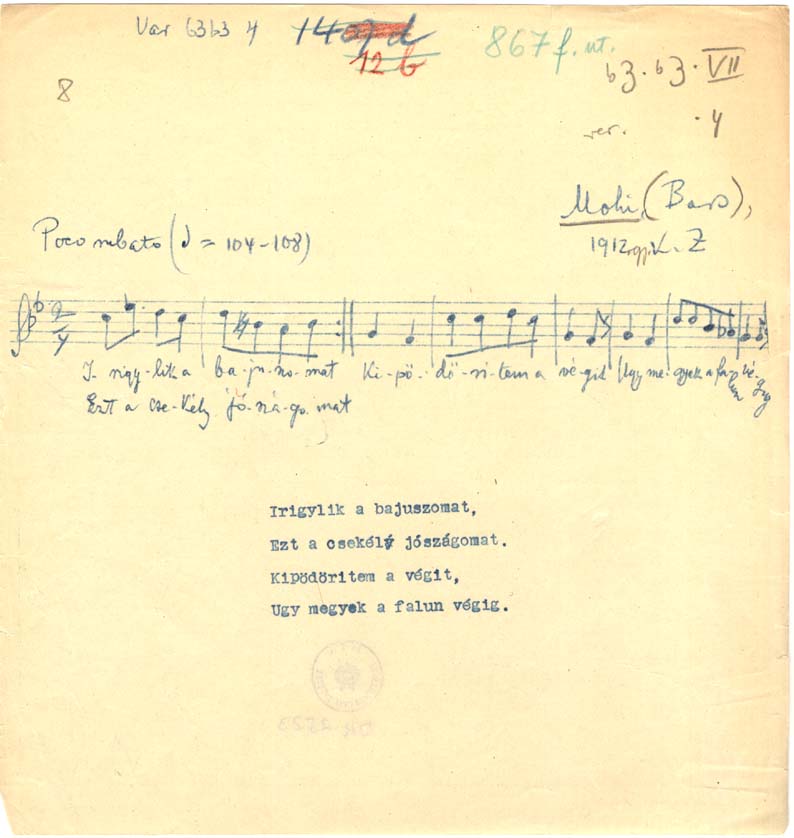 Var 6363 4
12 b
867 f. ut.
63. 63. VII
8
ver. . 4
Mohi (Bars),
1912 K. Z
Poco rubato (♩ = 104-108)
2
4
I- rigy-lik a ba-ju-szo-mat Ki-pö-dö-ri-tem a vé-git Ugy me-gyek a fa-lun vé-gig
Ezt a cse-kély jó-szá-go-mat
Irigylik a bajuszomat,
Ezt a csekélý jószágomat.
Kipödöritem a végit,
Ugy megyek a falun végig.